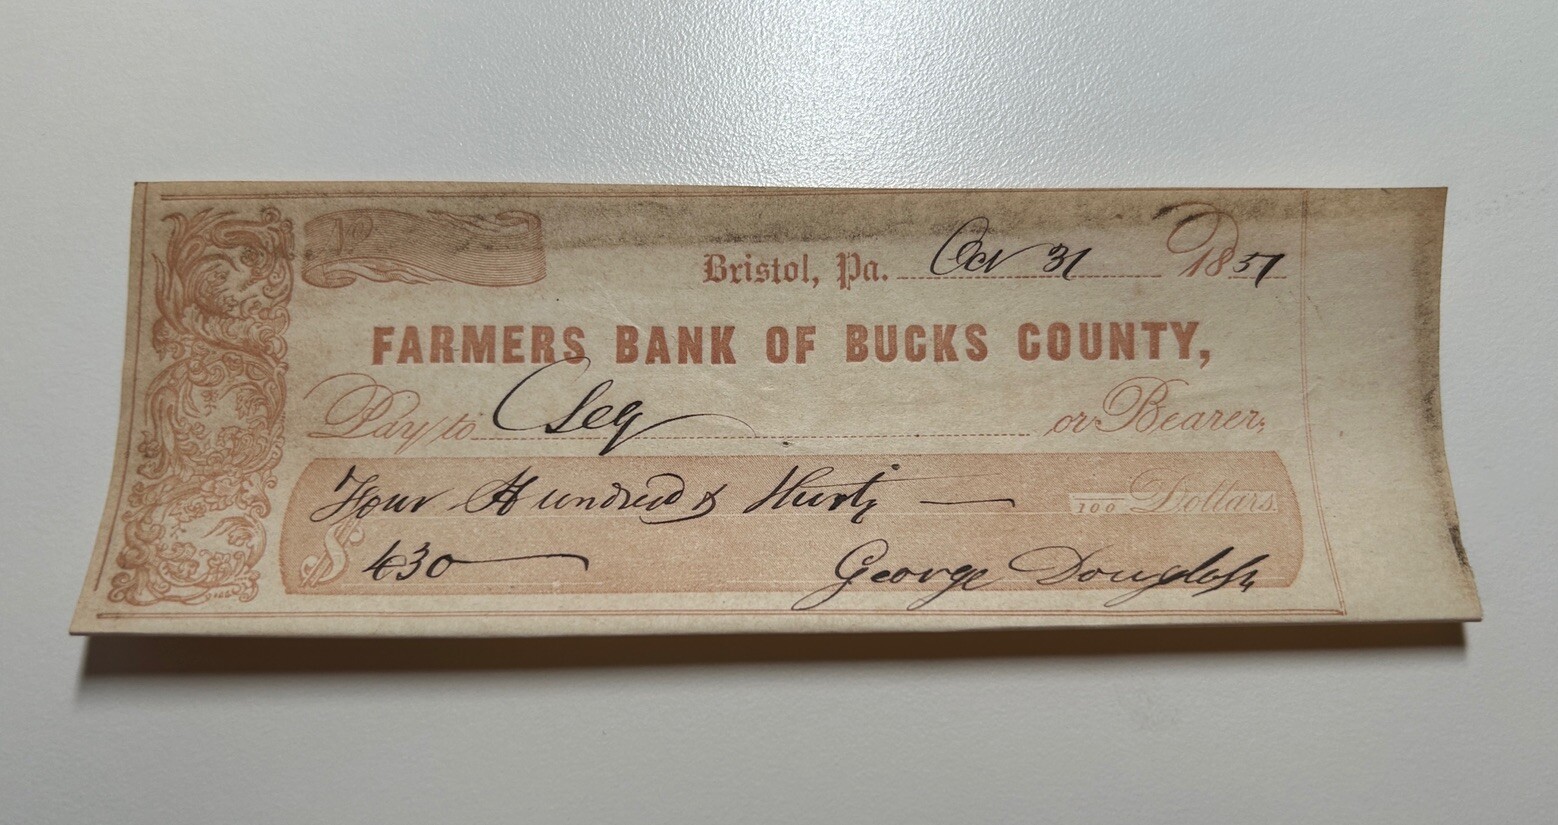 No
Bristol, Pa. Oct 31 1857
FARMERS BANK OF BUCKS COUNTY,
Pay to or Bearer,
Four Hundred & Thirty — /100 Dollars
$ 430 George Douglass